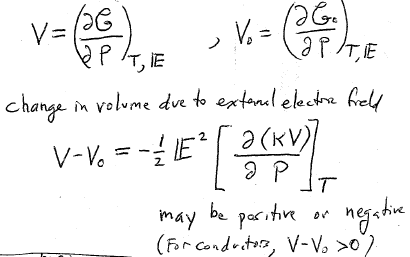 V = (∂G/∂P)_T,E , V₀ = (∂G₀/∂P)_T,E
change in volume due to external electric field
V-V₀ = -½ E² [∂(κV)/∂P]_T
may be positive or negative
(For conductors, V-V₀ >0)